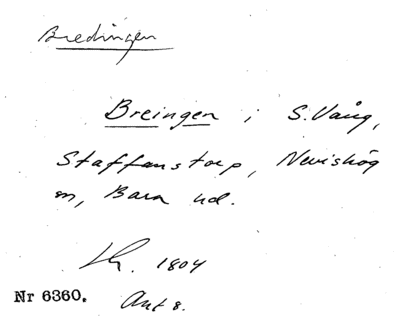 Bredingen
Breingen i S. Vång,
Staffanstorp, Nevishög
sn, Bara hd.
1804
Nr 6360. Ant 8.